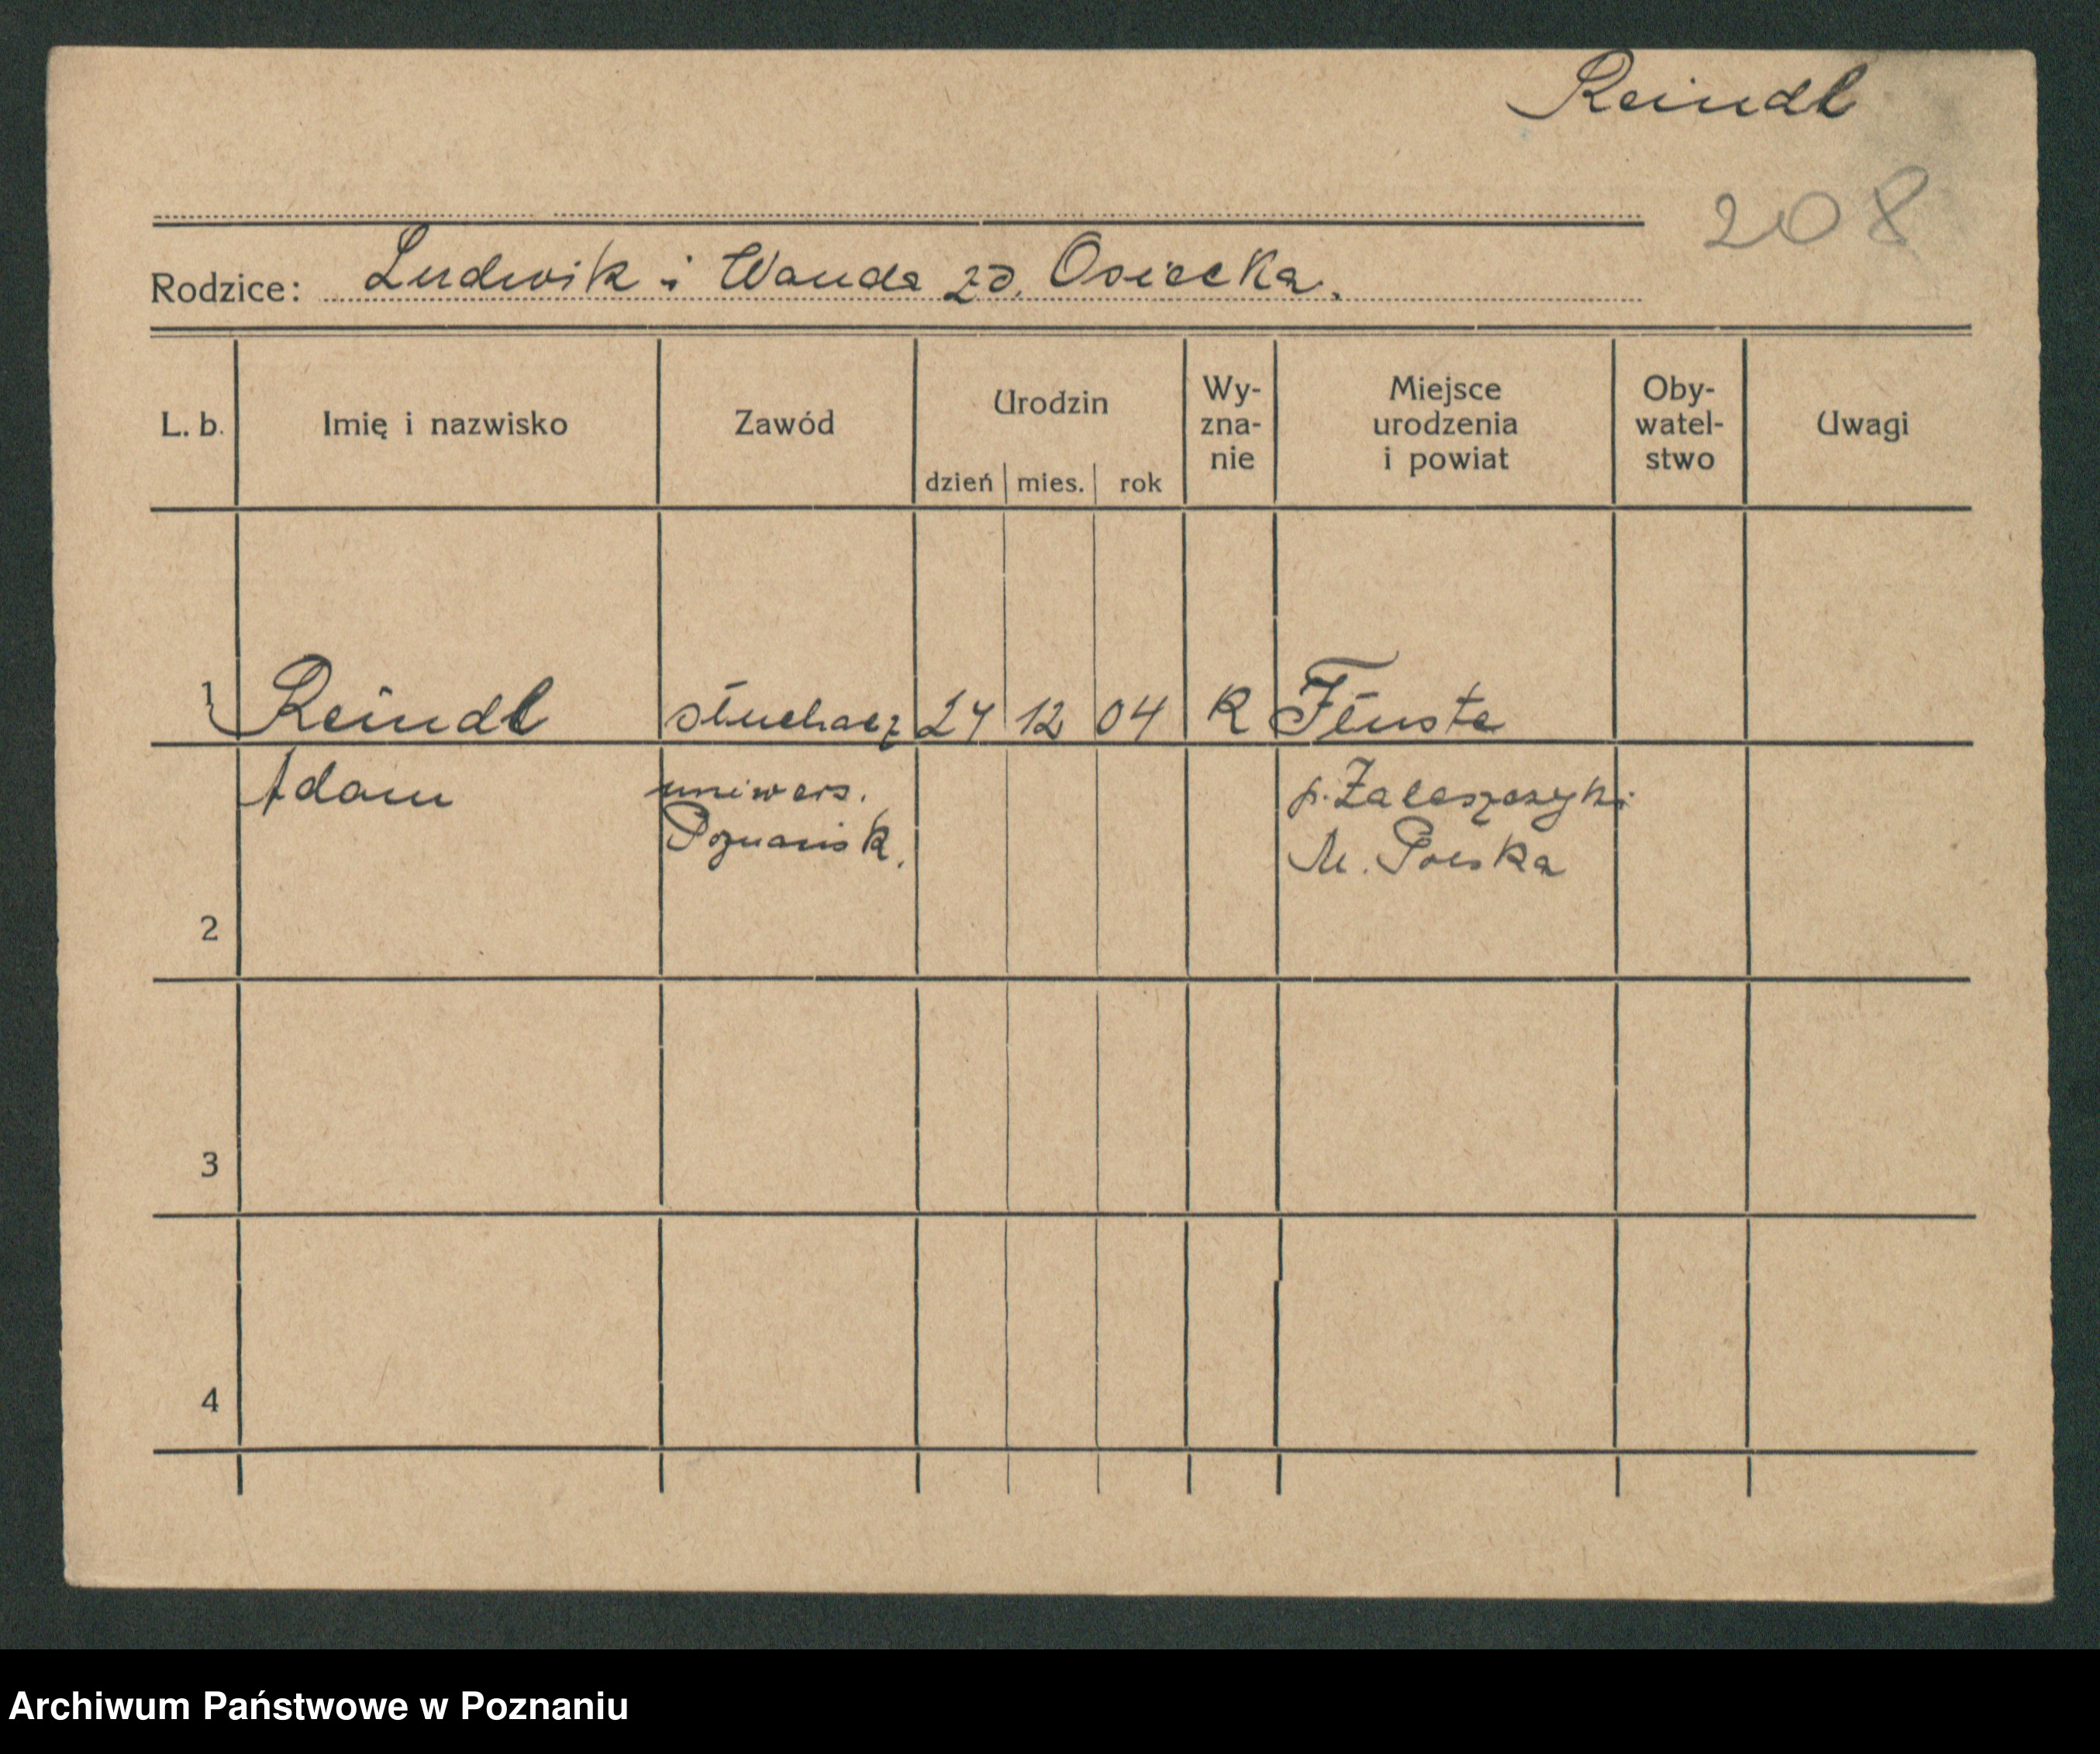 Reindl
208
Rodzice: Ludwik i Wanda zd. Osiecka.
L. b. Imię i nazwisko Zawód Urodzin dzień mies. rok Wy-zna-nie Miejsce urodzenia i powiat Oby-watel-stwo Uwagi
1 Reindl słuchacz 24 12 04 R Tłuste
Adam uniwers. p. Zaleszczyki
Poznańsk. M. Polska
2
3
4
Archiwum Państwowe w Poznaniu